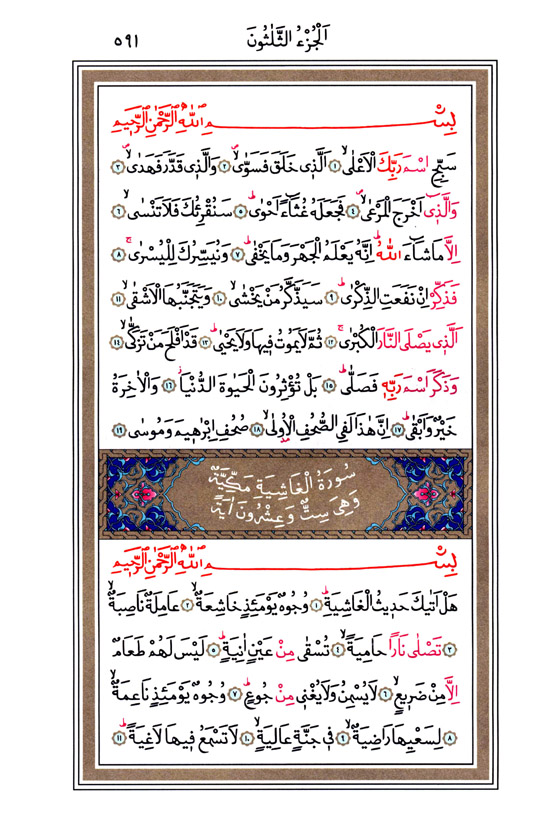 اَلْجُزْءُ الثَّلٰثُونَ ٥٩١
بِسْمِ اللّٰهِ الرَّحْمٰنِ الرَّحٖيمِ
سَبِّحِ اسْمَ رَبِّكَ الْاَعْلٰىۙ ﴿١﴾ اَلَّذٖى خَلَقَ فَسَوّٰىۙ ﴿٢﴾ وَالَّذٖى قَدَّرَ فَهَدٰىۙ ﴿٣﴾
وَالَّذٖٓى اَخْرَجَ الْمَرْعٰىۙ ﴿٤﴾ فَجَعَلَهُ غُثَٓاءً اَحْوٰىۜ ﴿٥﴾ سَنُقْرِئُكَ فَلَا تَنْسٰىۙ ﴿٦﴾
اِلَّا مَا شَٓاءَ اللّٰهُۜ اِنَّهُ يَعْلَمُ الْجَهْرَ وَمَا يَخْفٰىۜ ﴿٧﴾ وَنُيَسِّرُكَ لِلْيُسْرٰىۚ ﴿٨﴾
فَذَكِّرْ اِنْ نَفَعَتِ الذِّكْرٰىۜ ﴿٩﴾ سَيَذَّكَّرُ مَنْ يَخْشٰىۙ ﴿١٠﴾ وَيَتَجَنَّبُهَا الْاَشْقٰىۙ ﴿١١﴾
اَلَّذٖى يَصْلَى النَّارَ الْكُبْرٰىۚ ﴿١٢﴾ ثُمَّ لَا يَمُوتُ فٖيهَا وَلَا يَحْيٰىۜ ﴿١٣﴾ قَدْ اَفْلَحَ مَنْ تَزَكّٰىۙ ﴿١٤﴾
وَذَكَرَ اسْمَ رَبِّهٖ فَصَلّٰىۜ ﴿١٥﴾ بَلْ تُؤْثِرُونَ الْحَيٰوةَ الدُّنْيَاۘ ﴿١٦﴾ وَالْاٰخِرَةُ
خَيْرٌ وَاَبْقٰىۜ ﴿١٧﴾ اِنَّ هٰذَا لَفِى الصُّحُفِ الْاُولٰىۙ ﴿١٨﴾ صُحُفِ اِبْرٰهٖيمَ وَمُوسٰى ﴿١٩﴾
سُورَةُ الْغَاشِيَةِ مَكِّيَّةٌ
وَهِىَ سِتٌّ وَعِشْرُونَ اٰيَةً
بِسْمِ اللّٰهِ الرَّحْمٰنِ الرَّحٖيمِ
هَلْ اَتٰيكَ حَدٖيثُ الْغَاشِيَةِۜ ﴿١﴾ وُجُوهٌ يَوْمَئِذٍ خَاشِعَةٌۙ ﴿٢﴾ عَامِلَةٌ نَاصِبَةٌۙ
﴿٣﴾ تَصْلٰى نَارًا حَامِيَةًۙ ﴿٤﴾ تُسْقٰى مِنْ عَيْنٍ اٰنِيَةٍۜ ﴿٥﴾ لَيْسَ لَهُمْ طَعَامٌ
اِلَّا مِنْ ضَرٖيعٍۙ ﴿٦﴾ لَا يُسْمِنُ وَلَا يُغْنٖى مِنْ جُوعٍۜ ﴿٧﴾ وُجُوهٌ يَوْمَئِذٍ نَاعِمَةٌۙ
﴿٨﴾ لِسَعْيِهَا رَاضِيَةٌۙ ﴿٩﴾ فٖى جَنَّةٍ عَالِيَةٍۙ ﴿١٠﴾ لَا تَسْمَعُ فٖيهَا لَاغِيَةًۜ ﴿١١﴾